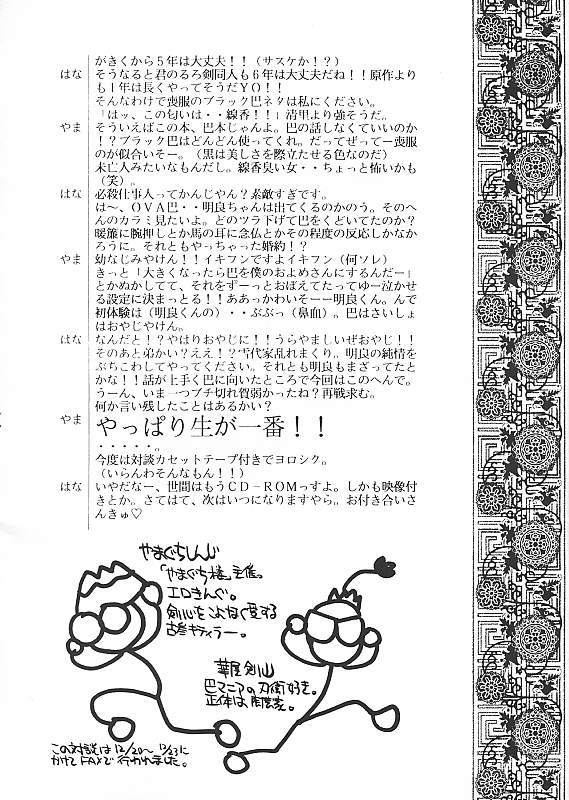 がきくから５年は大丈夫！！（サスケか！？）
はな そうなると君のるろ剣同人も６年は大丈夫だね！！原作より
も１年は長くやってそうだＹＯ！！
そんなわけで喪服のブラック巴ネタは私にください。
「はッ、この匂いは・・線香！！」清里より強そうだ。
やま そういえばこの本、巴本じゃんよ。巴の話しなくていいのか
！？ブラック巴はどんどん使ってくれ。だってぜってー喪服
のが似合いそー。（黒は美しさを際立たせる色なのだ）
未亡人みたいなもんだし。線香臭い女・・ちょっと怖いかも
（笑）。
はな 必殺仕事人ってかんじやん？素敵すぎです。
は～、ＯＶＡ巴・・明良ちゃんは出てくるのかのう。そのへ
んのカラミ見たいよ。どのツラ下げて巴をくどいてたのか？
暖簾に腕押しとか馬の耳に念仏とかその程度の反応しかなか
ろうに。それともやっちゃった婚約！？
やま 幼なじみやけん！！イキフンですよイキフン（何ソレ）
きっと「大きくなったら巴を僕のおよめさんにするんだー」
とかぬかしてて、それをずーっとおぼえてたってゆー泣かせ
る設定に決まっとる！！ああっかわいそーー明良くん。んで
初体験は（明良くんの）・・ぶぶっ（鼻血）。巴はさいしょ
はおやじやけん。
はな なんだと！？やはりおやじに！！うらやましいぜおやじ！！
そのあと弟かい？ええ！？雪代家乱れまくり。明良の純情を
ぶちこわしてやってください。それとも明良もまざってたと
かな！！話が上手く巴に向いたところで今回はこのへんで。
うーん、いま一つブチ切れ賀弱かったね？再戦求む。
何か言い残したことはあるかい？
やま やっぱり生が一番！！
・・・・・。
今度は対談カセットテープ付きでヨロシク。
（いらんわそんなもん！！）
はな いやだなー、世間はもうＣＤ－ＲＯＭっすよ。しかも映像付
きとか。さてはて、次はいつになりますやら。お付き合いさ
んきゅ♡
やまぐちしんじ
「やまぐち様」主催。
エロきんぐ。
剣心をこよなく愛する
古参ギディラー。
華屋剣山
巴マニアの刃衛好き。
正体は
この対談は12/20～12/23に
かけてFAXで行われました。